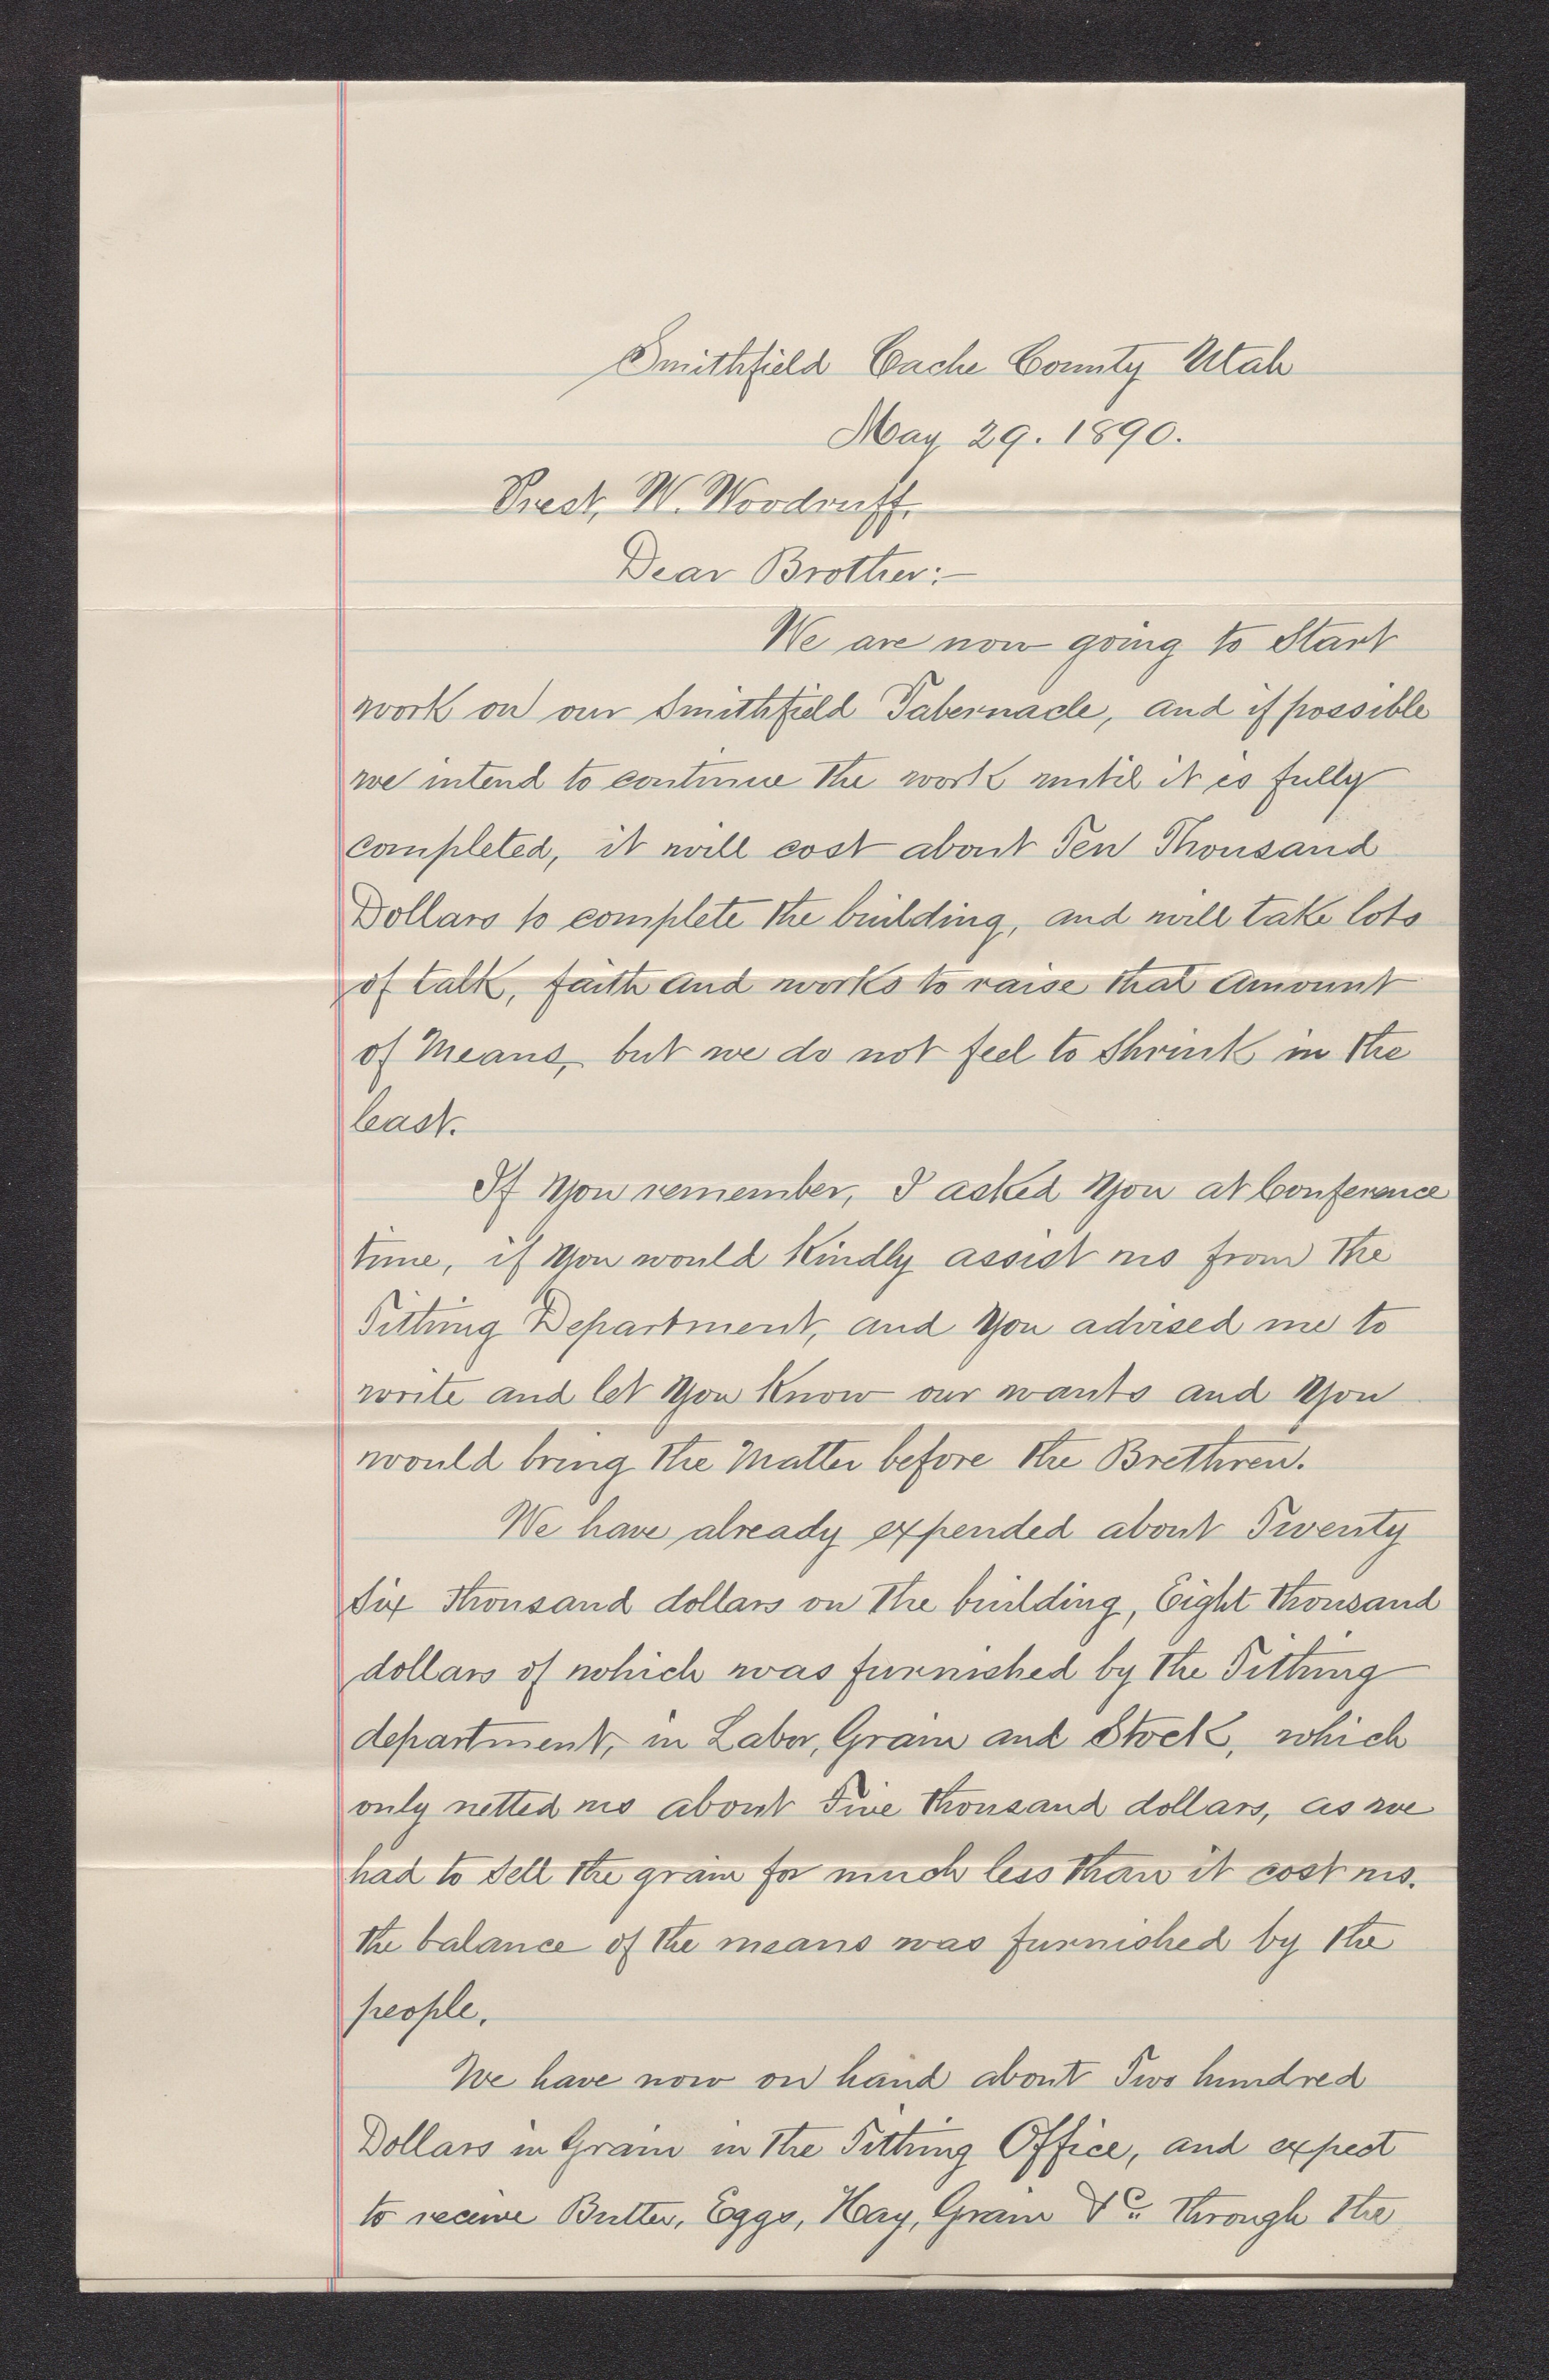 Smithfield Cache County Utah
May 29. 1890.
Prest, W. Woodruff,
Dear Brother:—
We are now going to Start
work on our Smithfield Tabernacle, and if possible
we intend to continue the work until it is fully
completed, it will cost about Ten Thousand
Dollars to complete the building, and will take lots
of talk, faith and works to raise that amount
of Means, but we do not feel to Shrink in the
least.
If you remember, I asked you at Conference
time, if you would Kindly assist us from the
Tithing Department, and you advised me to
write and let you Know our wants and you
would bring the Matter before the Brethren.
We have already expended about Twenty
Six thousand dollars on the building, Eight thousand
dollars of which was furnished by the Tithing
department, in Labor, Grain and Stock, which
only netted us about Five thousand dollars, as we
had to Sell the grain for much less than it cost us.
the balance of the means was furnished by the
people.
We have now on hand about Two hundred
Dollars in Grain in the Tithing Office, and expect
to receive Butter, Eggs, Hay, Grain &c. through the